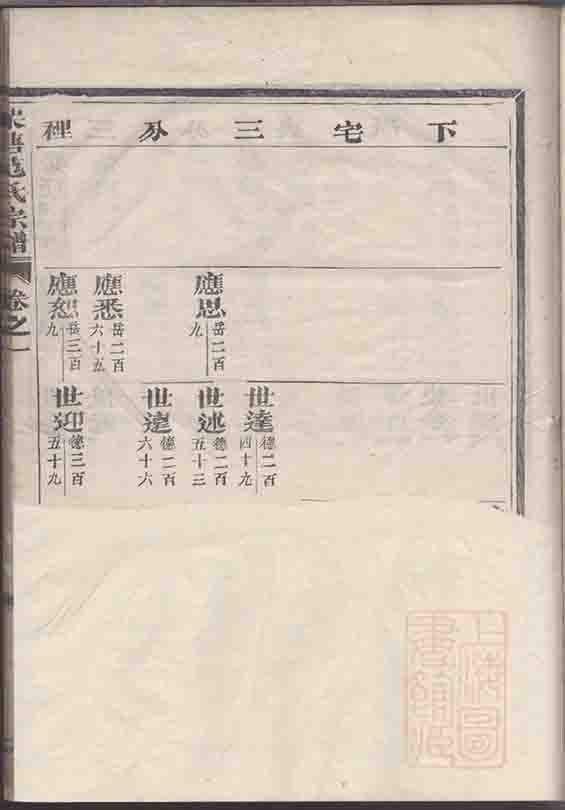 下宅三分裡
應思
岳二百
九
應悉
岳二百
六十五
應
岳三百
九
世達
德二百
四十九
世述
德二百
五十三
世
德二百
六十六
世迎
德三百
五十九
氏宗譜
卷之一
上海圖
書館藏